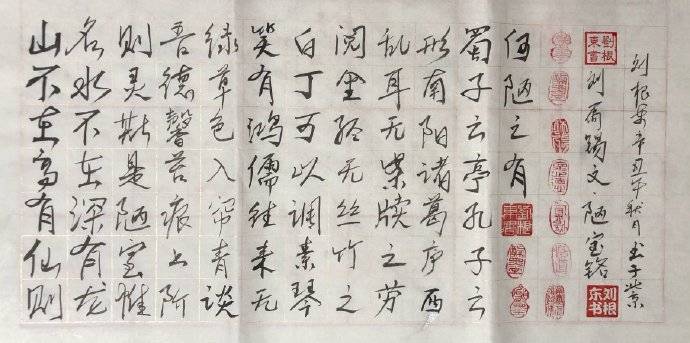 山不在高有仙则
名水不在深有龙
则灵斯是陋室惟
吾德馨苔痕上阶
绿草色入帘青谈
笑有鸿儒往来无
白丁可以调素琴
阅金经无丝竹之
乱耳无案牍之劳
形南阳诸葛庐西
蜀子云亭孔子云
何陋之有
劉根東書
劉根東書
刘禹锡文·陋室铭
刘根东书
刘根东辛丑年秋月书于